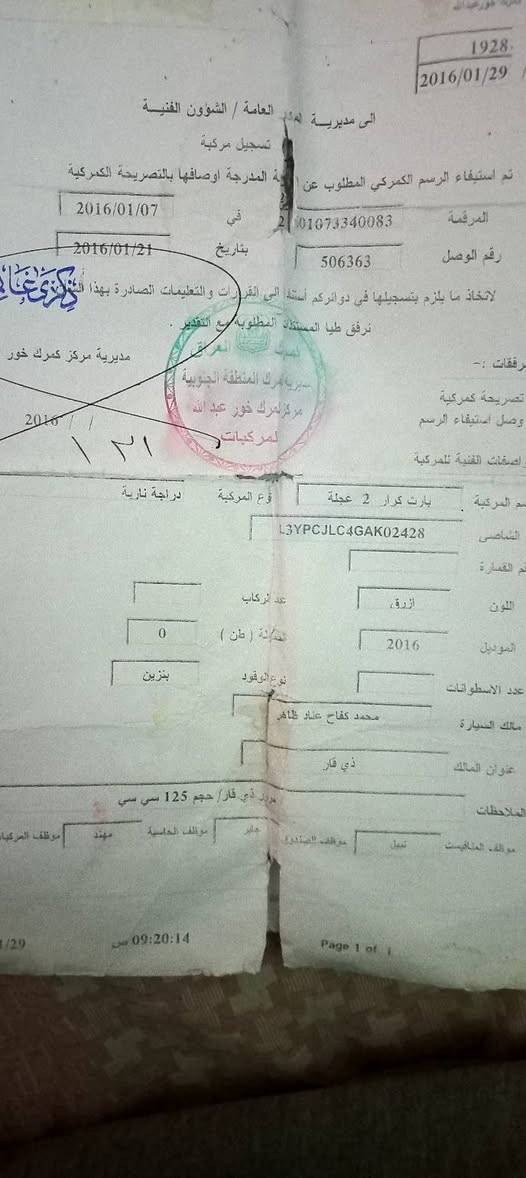 1928
2016/01/29
الى مديرية العامة / الشؤون الفنية
تسجيل مركبة
تم استيفاء الرسم الكمركي المطلوب عن المدرجة اوصافها بالتصريحة الكمركية
المرقمة 01073340083 في 2016/01/07
رقم الوصل 506363 بتاريخ 2016/01/21
لاتخاذ ما يلزم بتسجيلها في دوائركم استنادا الى القرارات والتعليمات الصادرة بهذا
نرفق طيا المستندات المطلوبة مع التقدير .
مديرية مركز كمرك خور
2016 / /
العراق
مديرية كمرك المنطقة الجنوبية
مركز كمرك خور عبد الله
المركبات
مرفقات :-
تصريحة كمركية
وصل استيفاء الرسم
الفنية للمركبة
المركبة بارت كرار 2 عجلة نوع المركبة دراجة نارية
الشاصي L3YPCJLC4GAK02428
رقم القمارة
اللون ازرق عدد الركاب
الموديل 2016 الحمولة ( طن ) 0
عدد الاسطوانات نوع الوقود بنزين
مالك السيارة محمد كفاح عناد ظاهر
عنوان المالك ذي قار
الملاحظات مرور ذي قار/ حجم 125 سي سي
موظف المنافيست نبيل موظف الصندوق جابر موظف الحاسبة مهند موظف المركبات
Page 1 of 1 09:20:14 ص 1/29